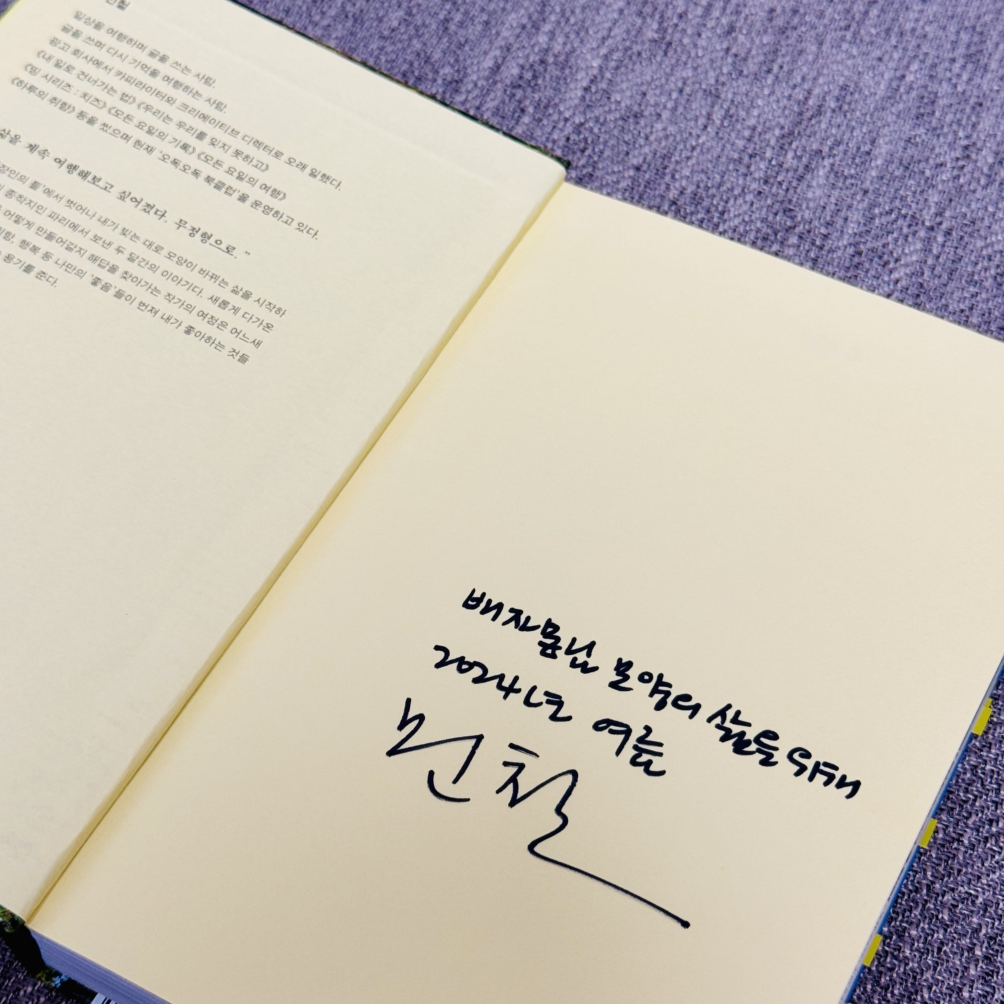 민철
일상을 여행하며 글을 쓰는 사람,
글을 쓰며 다시 기억을 여행하는 사람.
광고 회사에서 카피라이터와 크리에이티브 디렉터로 오래 일했다.
《내 일로 건너가는 법》《우리는 우리를 잊지 못하고》
《띵 시리즈 : 치즈》《모든 요일의 기록》《모든 요일의 여행》
《하루의 취향》 등을 썼으며 현재 '오독오독 북클럽'을 운영하고 있다.
삶을 계속 여행해보고 싶어졌다. 무정형으로. "
'직장인의 틀'에서 벗어나 내가 빚는 대로 모양이 바뀌는 삶을 시작하
종착지인 파리에서 보낸 두 달간의 이야기다. 새롭게 다가온
어떻게 만들어갈지 해답을 찾아가는 작가의 여정은 어느새
행복 등 나만의 '좋음'들이 번져 내가 좋아하는 것들
용기를 준다.
배자몽님 모양의 삶을 위해
2024년 여름
민철